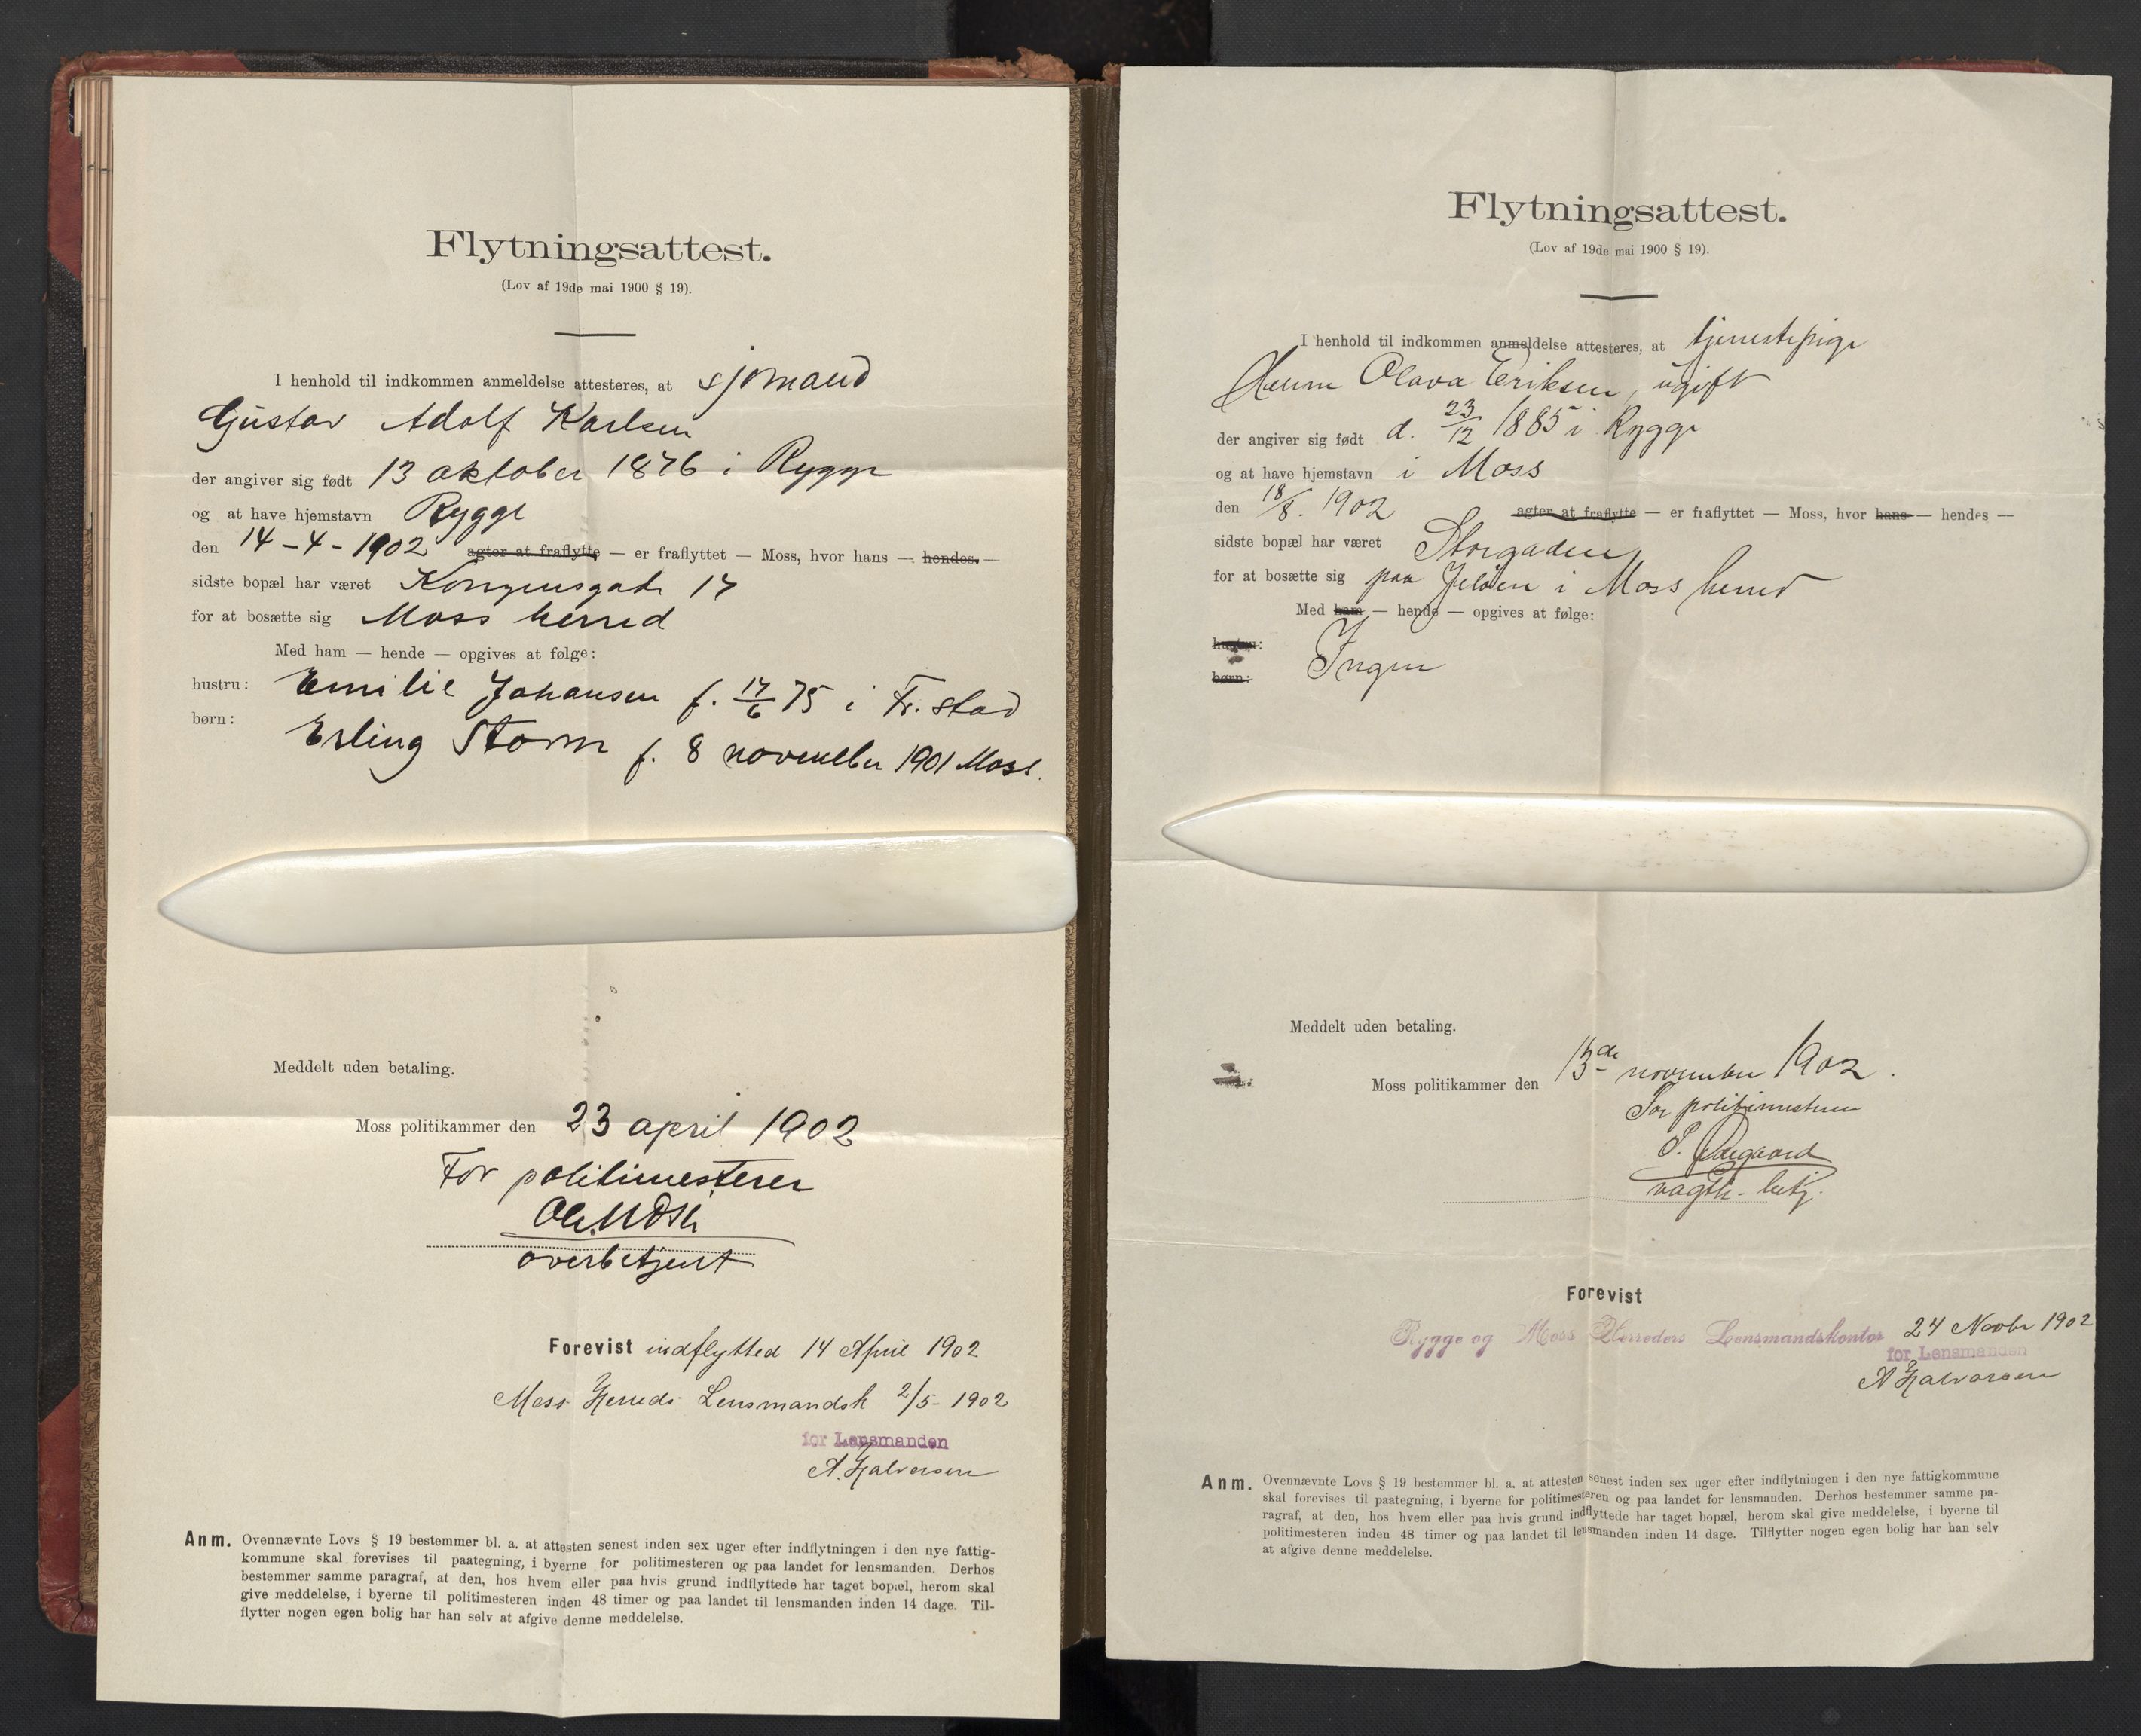 Flytningsattest.
(Lov af 19de mai 1900 § 19).
I henhold til indkommen anmeldelse attesteres, at sjømand
Gustav Adolf Karlsen
der angiver sig født 13 oktober 1876 i Rygge
og at have hjemstavn Rygge
den 14-4-1902 agter at fraflytte — er fraflyttet — Moss, hvor hans — hendes. —
sidste bopæl har været Kongensgade 17
for at bosætte sig Moss herred
Med ham — hende — opgives at følge:
hustru: Emilie Johansen f. 17/6 75 i Fr.stad
børn: Erling Storm f. 8 november 1901 Moss.
Meddelt uden betaling.
Moss politikammer den 23 april 1902
For politimesteren
overbetjent
Forevist indflytted 14 April 1902
Moss Herreds Lensmandsk 2/5- 1902
for Lensmanden
A. Halvorsen
Anm. Ovennævnte Lovs § 19 bestemmer bl. a. at attesten senest inden sex uger efter indflytningen i den nye fattig-
kommune skal forevises til paategning, i byerne for politimesteren og paa landet for lensmanden. Derhos
bestemmer samme paragraf, at den, hos hvem eller paa hvis grund indflyttede har taget bopæl, herom skal
give meddelelse, i byerne til politimesteren inden 48 timer og paa landet til lensmanden inden 14 dage. Til-
flytter nogen egen bolig har han selv at afgive denne meddelelse.
Flytningsattest.
(Lov af 19de mai 1900 § 19).
I henhold til indkommen anmeldelse attesteres, at tjenestepige
Olava Eriksen, ugift
der angiver sig født d. 23/12 1885 i Rygge
og at have hjemstavn i Moss
den 18/8. 1902 agter at fraflytte — er fraflyttet — Moss, hvor hans — hendes —
sidste bopæl har været Storgaden
for at bosætte sig paa Jeløen i Moss herred
Med ham — hende — opgives at følge:
hustru: Ingen
børn:
Meddelt uden betaling.
Moss politikammer den 13de november 1902.
For politimesteren
P. Ødegaard
vagth. betj.
Forevist
Rygge og Moss Herreders Lensmandskontor 24 Novbr 1902
for Lensmanden
A Halvorsen
Anm. Ovennævnte Lovs § 19 bestemmer bl. a. at attesten senest inden sex uger efter indflytningen i den nye fattigkommune
skal forevises til paategning, i byerne for politimesteren og paa landet for lensmanden. Derhos bestemmer samme pa-
ragraf, at den, hos hvem eller paa hvis grund indflyttede har taget bopæl, herom skal give meddelelse, i byerne til
politimesteren inden 48 timer og paa landet til lensmanden inden 14 dage. Tilflytter nogen egen bolig har han selv
at afgive denne meddelelse.